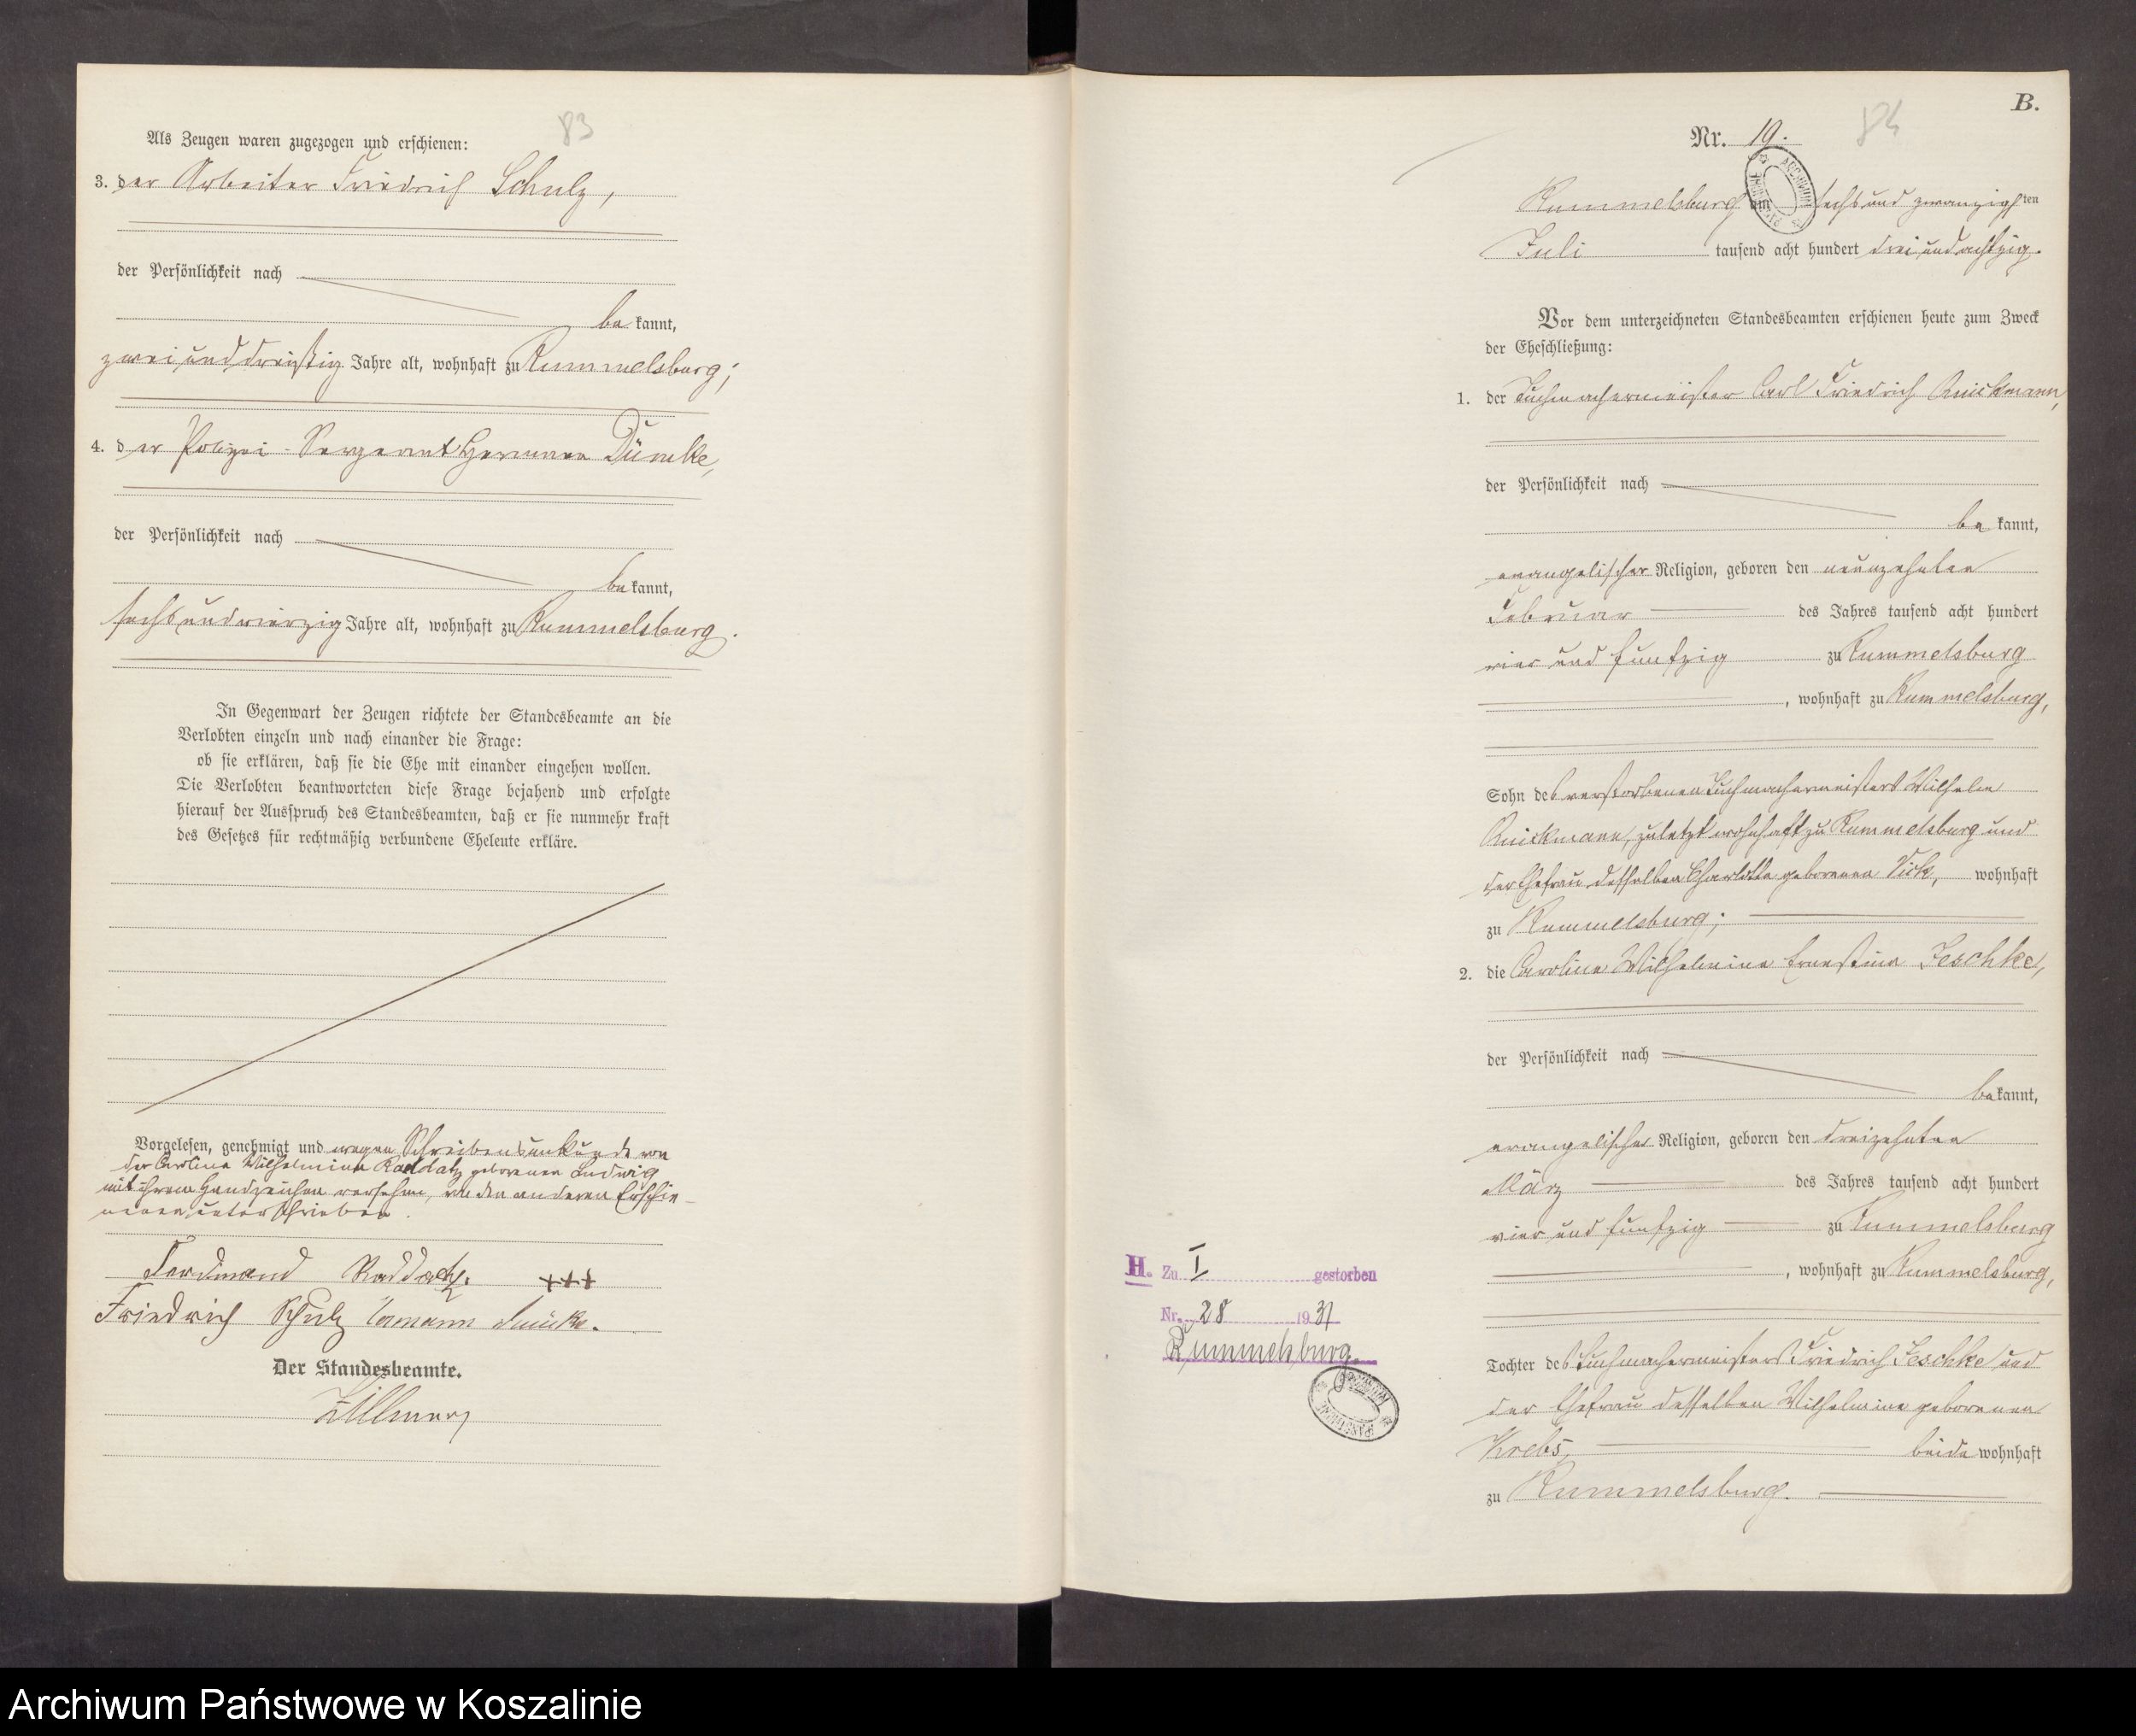 83
Als Zeugen waren zugezogen und erschienen:
3. der Arbeiter Friedrich Schulz,
der Persönlichkeit nach
be kannt,
zwei und dreißig Jahre alt, wohnhaft zu Rummelsburg;
4. der Polizei-Sergeant Hermann Dümke,
der Persönlichkeit nach
be kannt,
sechs und vierzig Jahre alt, wohnhaft zu Rummelsburg.
In Gegenwart der Zeugen richtete der Standesbeamte an die
Verlobten einzeln und nach einander die Frage:
ob sie erklären, daß sie die Ehe mit einander eingehen wollen.
Die Verlobten beantworteten diese Frage bejahend und erfolgte
hierauf der Ausspruch des Standesbeamten, daß er sie nunmehr kraft
des Gesetzes für rechtmäßig verbundene Eheleute erkläre.
Vorgelesen, genehmigt und wegen Schreibensunkunde von
der Caroline Wilhelmine Raddatz geborenen Ludwig
mit ihrem Handzeichen versehen, von den anderen Erschie-
nenen unterschrieben.
Ferdinand Raddatz. +++
Friedrich Schulz Hermann Dümke.
Der Standesbeamte.
B.
84
Nr. 19.
Rummelsburg am sechs und zwanzigsten
Juli tausend acht hundert drei und achtzig.
Vor dem unterzeichneten Standesbeamten erschienen heute zum Zweck
der Eheschließung:
1. der Tuchmachermeister Carl Friedrich Knickmann,
der Persönlichkeit nach
be kannt,
evangelischer Religion, geboren den neunzehnten
Februar des Jahres tausend acht hundert
vier und funfzig zu Rummelsburg
, wohnhaft zu Rummelsburg,
Sohn des verstorbenen Tuchmachermeisters Wilhelm
Knickmann, zuletzt wohnhaft zu Rummelsburg und
der Ehefrau desselben Charlotte geborenen Vick, wohnhaft
zu Rummelsburg;
2. die Caroline Wilhelmine Ernestine Jeschke,
der Persönlichkeit nach
be kannt,
evangelischer Religion, geboren den dreizehnten
März des Jahres tausend acht hundert
vier und funfzig zu Rummelsburg
, wohnhaft zu Rummelsburg,
Tochter des Tuchmachermeisters Friedrich Jeschke und
der Ehefrau desselben Wilhelmine geborenen
Krebs, beide wohnhaft
zu Rummelsburg.
H. Zu I gestorben
Nr. 28 1931
Rummelsburg
Archiwum Państwowe w Koszalinie